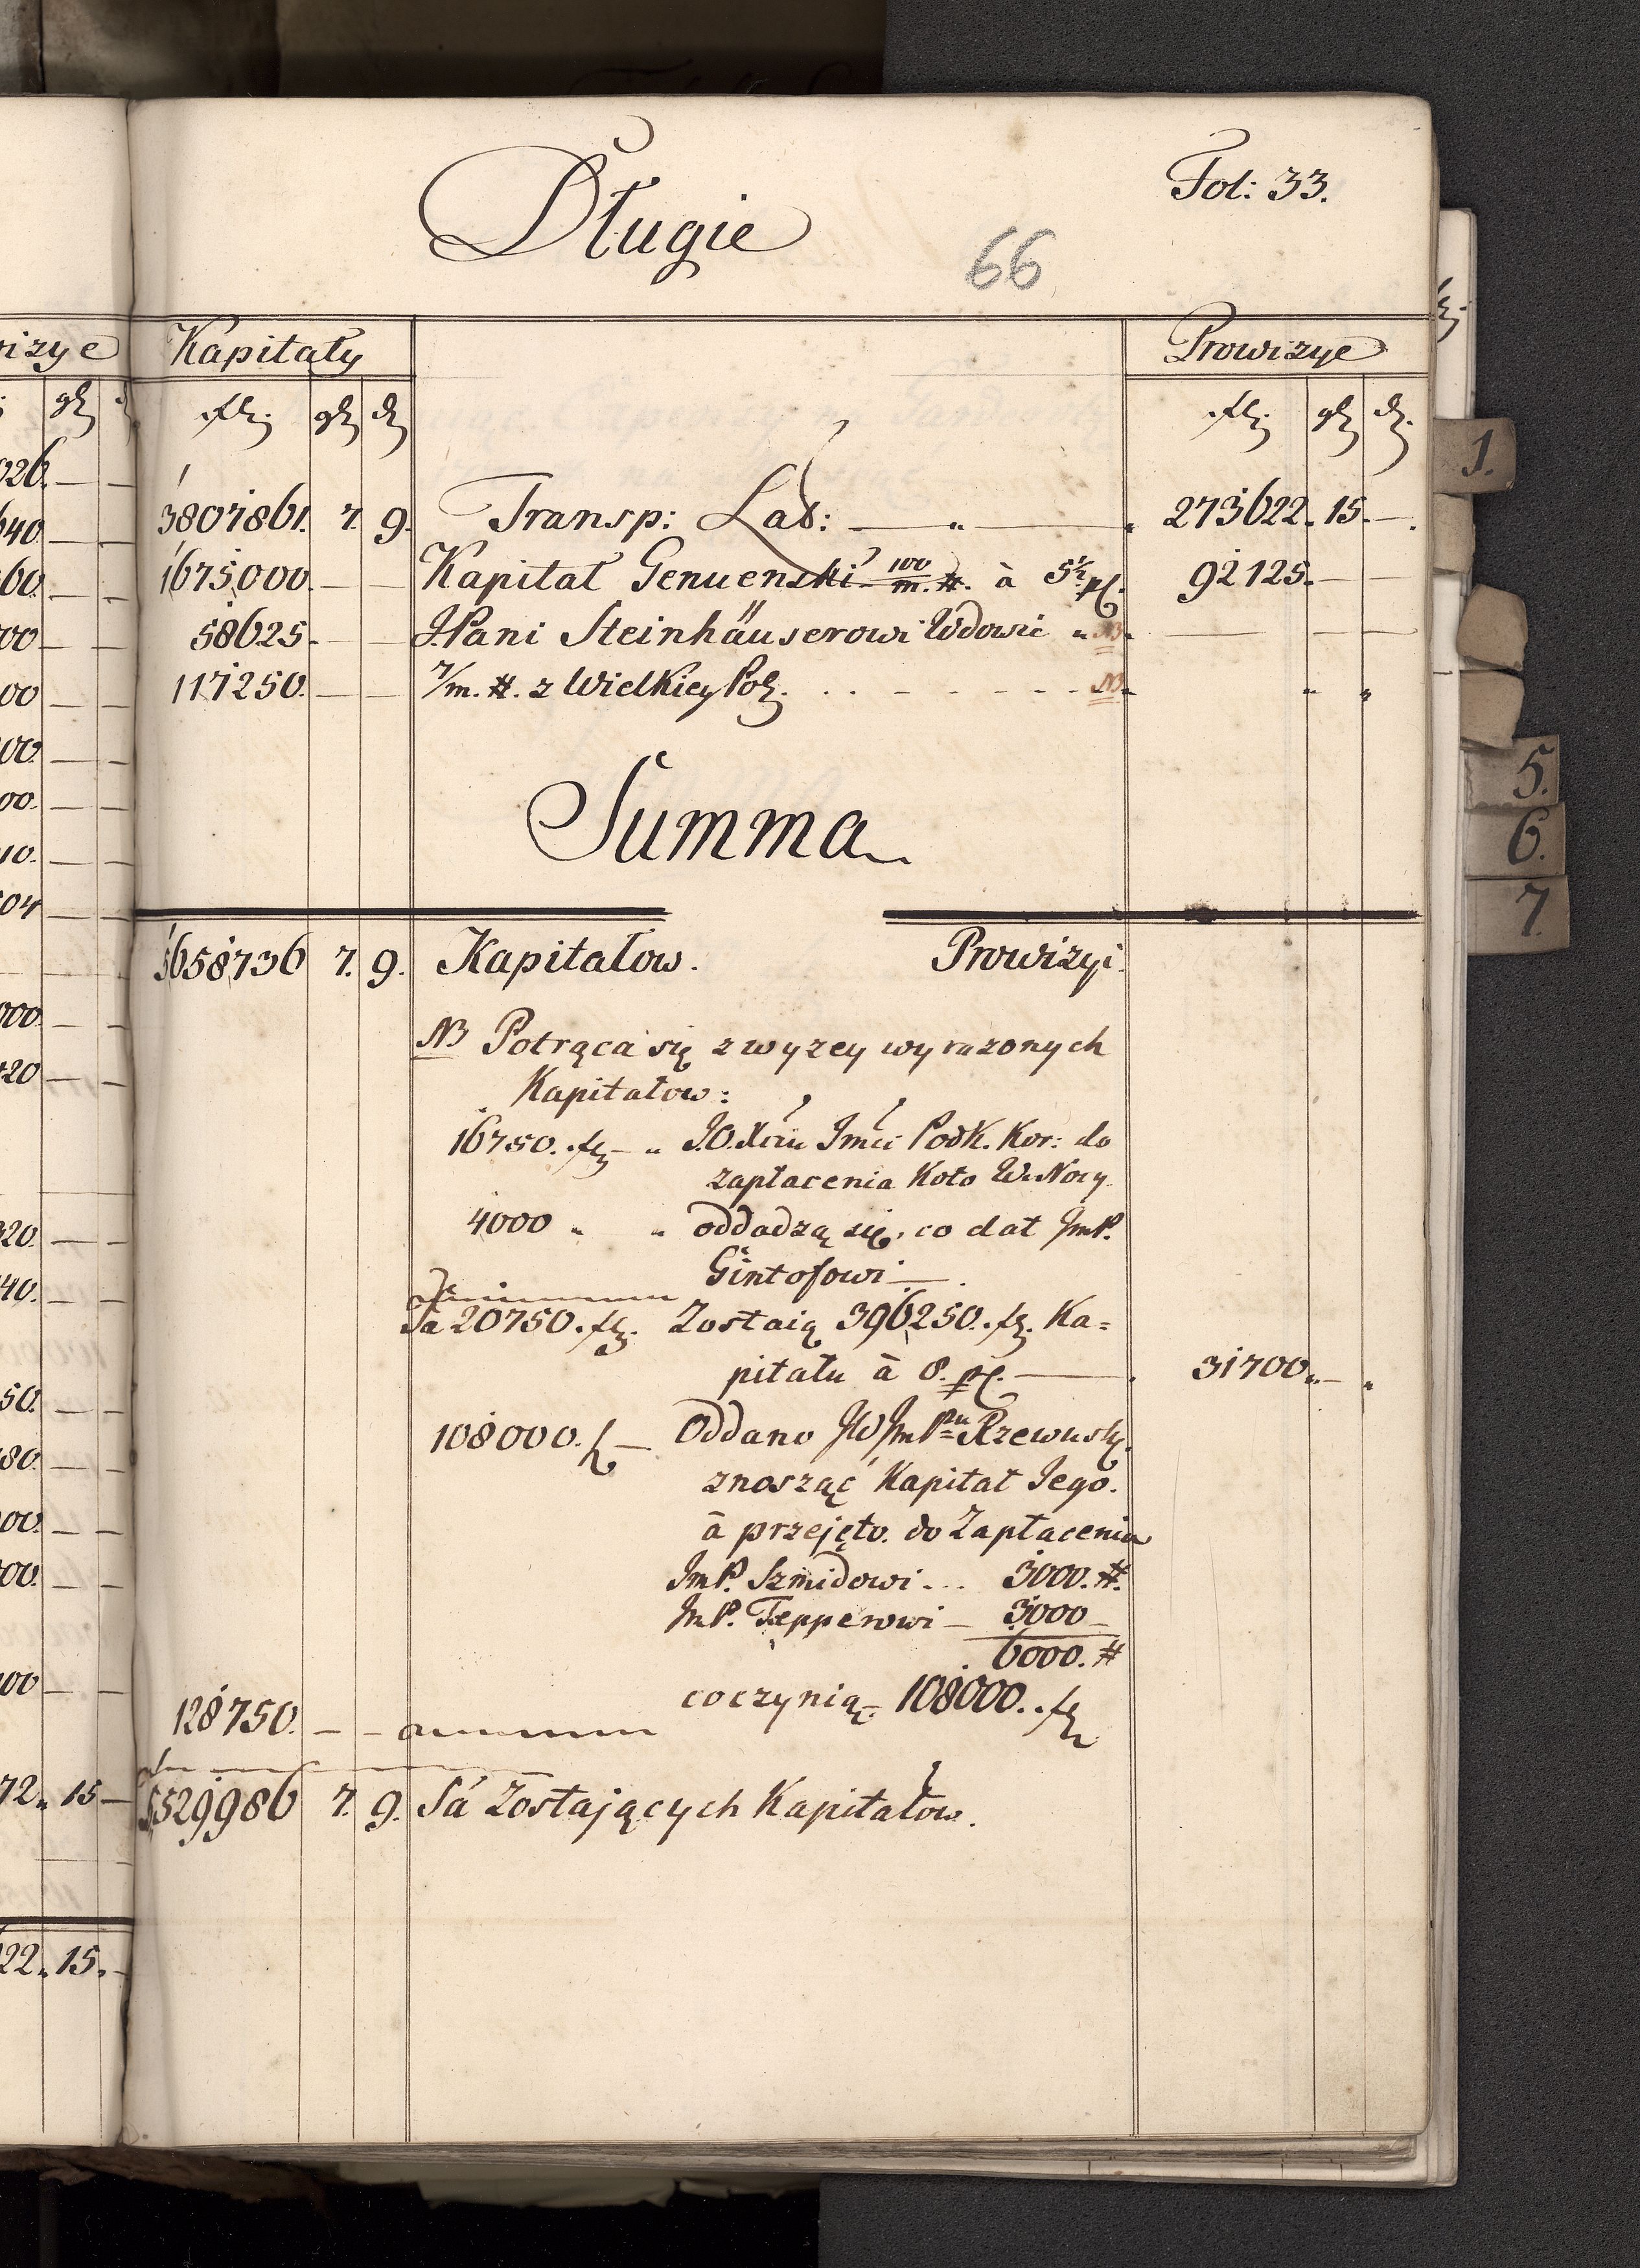 Długie
Fol: 33.
66
Kapitały
Prowizye
3807861. 7. 9. Transp: Lat: — „ — „ 273622. 15. —
1675000. — — Kapitał Genuenski 100/m. #. à 5½ pC. 92125. — —
58625. — — JPani Steinhäuserowi Wdowie „ NB — — —
117250. — — 7/m. #. z Wielkiey Pol. NB „ „
Summa
5658736 7. 9. Kapitałow. Prowizyi
NB Potrąca się z wyzey wyrazonych
Kapitałow:
16750. fl. — „ J.O. Xciu Jmci Podk. Kor: do
zapłacenia Koło W. Nocy
4000 „ „ oddadzą się, co dał JmP.
Gintofowi —
Sa 20750. fl. Zostaią 396250. fl. Ka=
pitału à 8. pC. — 31700. — „
108000. fl — Oddano JW JmPnu Rzewusk.
znosząć Kapitał Jego.
à przejęto. do Zapłacenia
JmP. Szmidowi... 3000. #.
JmP. Tepperowi — 3000 —
6000. #
co czynią — 108000. fl
128750. — —
5529986 7. 9. Sa Zostających Kapitałow.
1.
5.
6.
7.